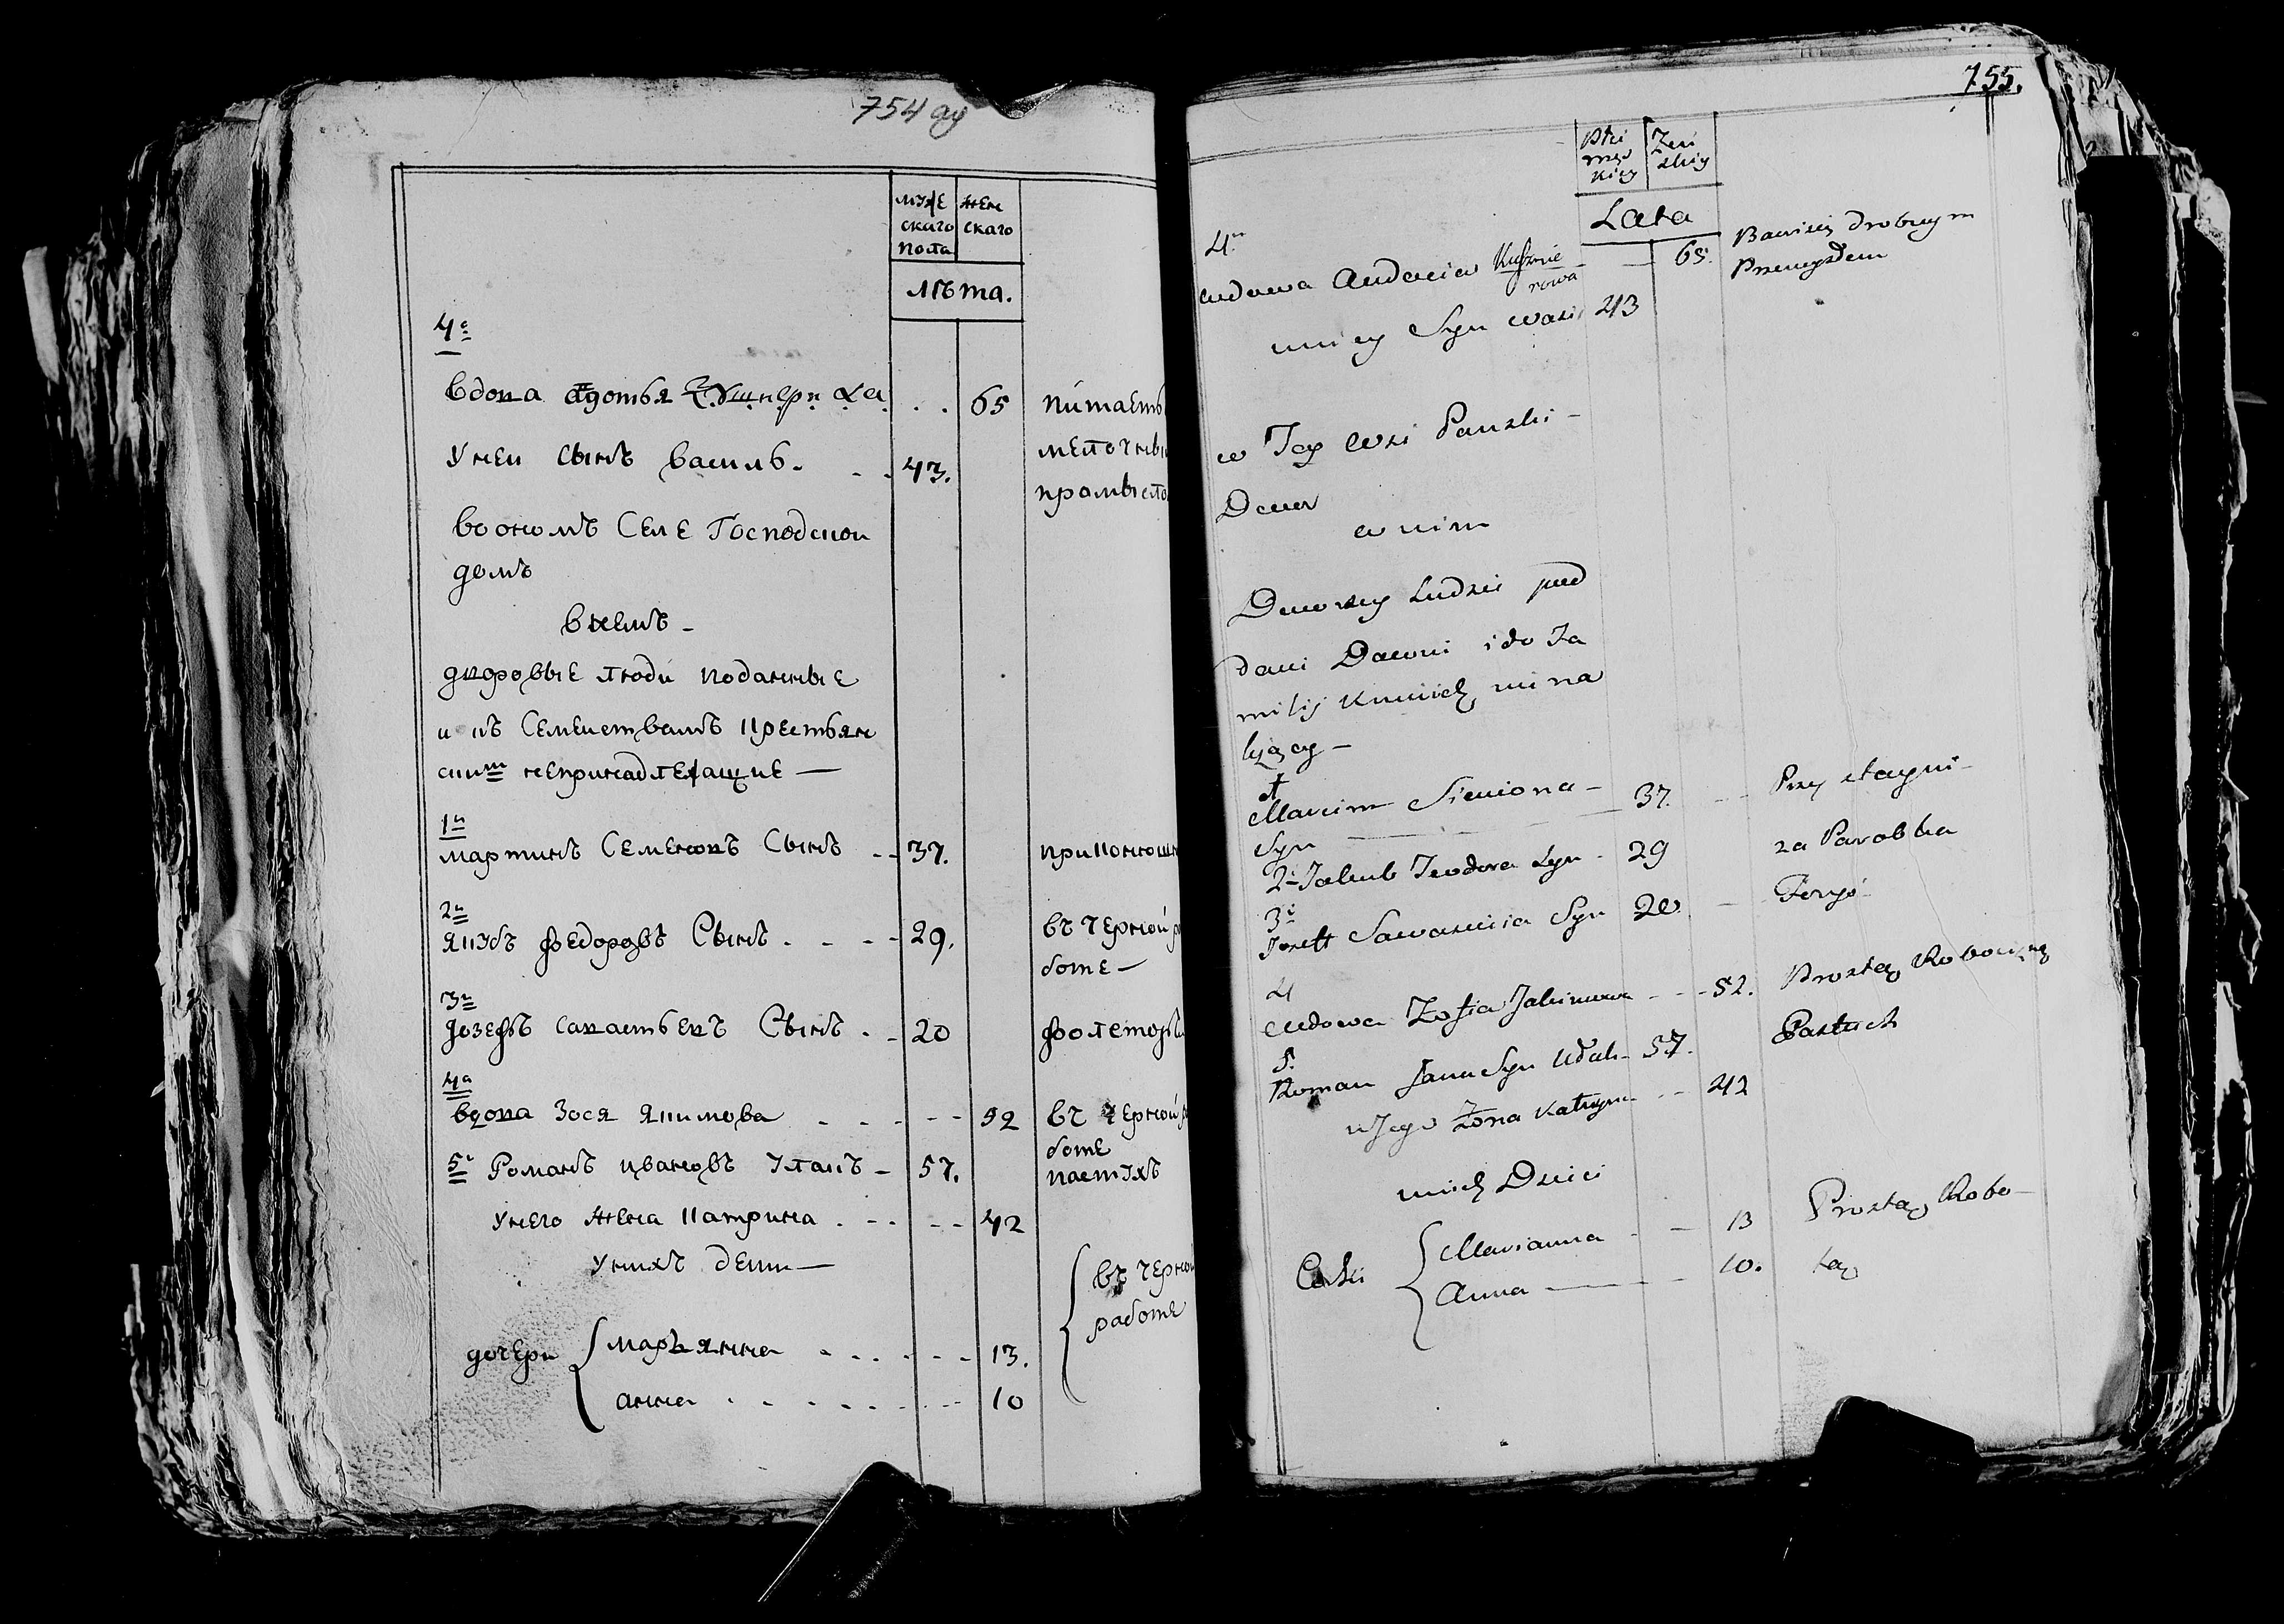 754 ау
муже
скаго
пола
жен
скаго
лѣта.
4е
вдова Адотья Кушнериха . . 65 питаетъ
Унеи сынъ Василь. - - 43. мелочны
промысло
во ономъ Селе Господскои
домъ
внемъ -
дворовые люди поданные
и къ Семеиствамъ крестьян
скимъ непринадлежащие —
1и
мартинъ Семеновъ Сынъ - - 37. при конюшн
2и
Якубъ федоровъ Сынъ . - - - 29. въ черной ра
боте —
3и
Йозефъ Савастьевъ Сынъ . - 20 фолеторъ
4а
вдова Зося Якимова . - - - - 52 въ черной ра
боте
5и Романъ ивановъ Улакъ - 57. пастухъ
Унего жена Катрина . - - - - 42
Унихъ дети —
дочери
Марьянна - - - - - - 13.
анна . - - - - - - 10
въ черной
работе
755.
Płci
męs
kiey
Żeń
skiey
Lata
4a
wdowa Audocia Kusznie
rowa — 65. Bawisię drobnym
Przemysłem
uniey Syn Wasil 43
w Tey wsi Panski -
Dwor
w nim
Dworscy Ludzie pod
dani Dawni i do Fa
milij Kmiich nina
lżący —
1
Marcin Siemiona - 37. Przy stayni -
Syn
2i Jakub Teodora Syn - 29 za Parobka
3i
Joseff Sawasteia Syn 20 - Foryś
4
wdowa Zofia Jakimowa - - - 52. Prostą Roboczną
5.
Roman Jana Syn Ułak - 57. Pastuch
uJego Żona Katryna - - 42
unich Dzieci
Corki
Marianna - - 13
Anna — - 10.
Prostą Robo-
tą